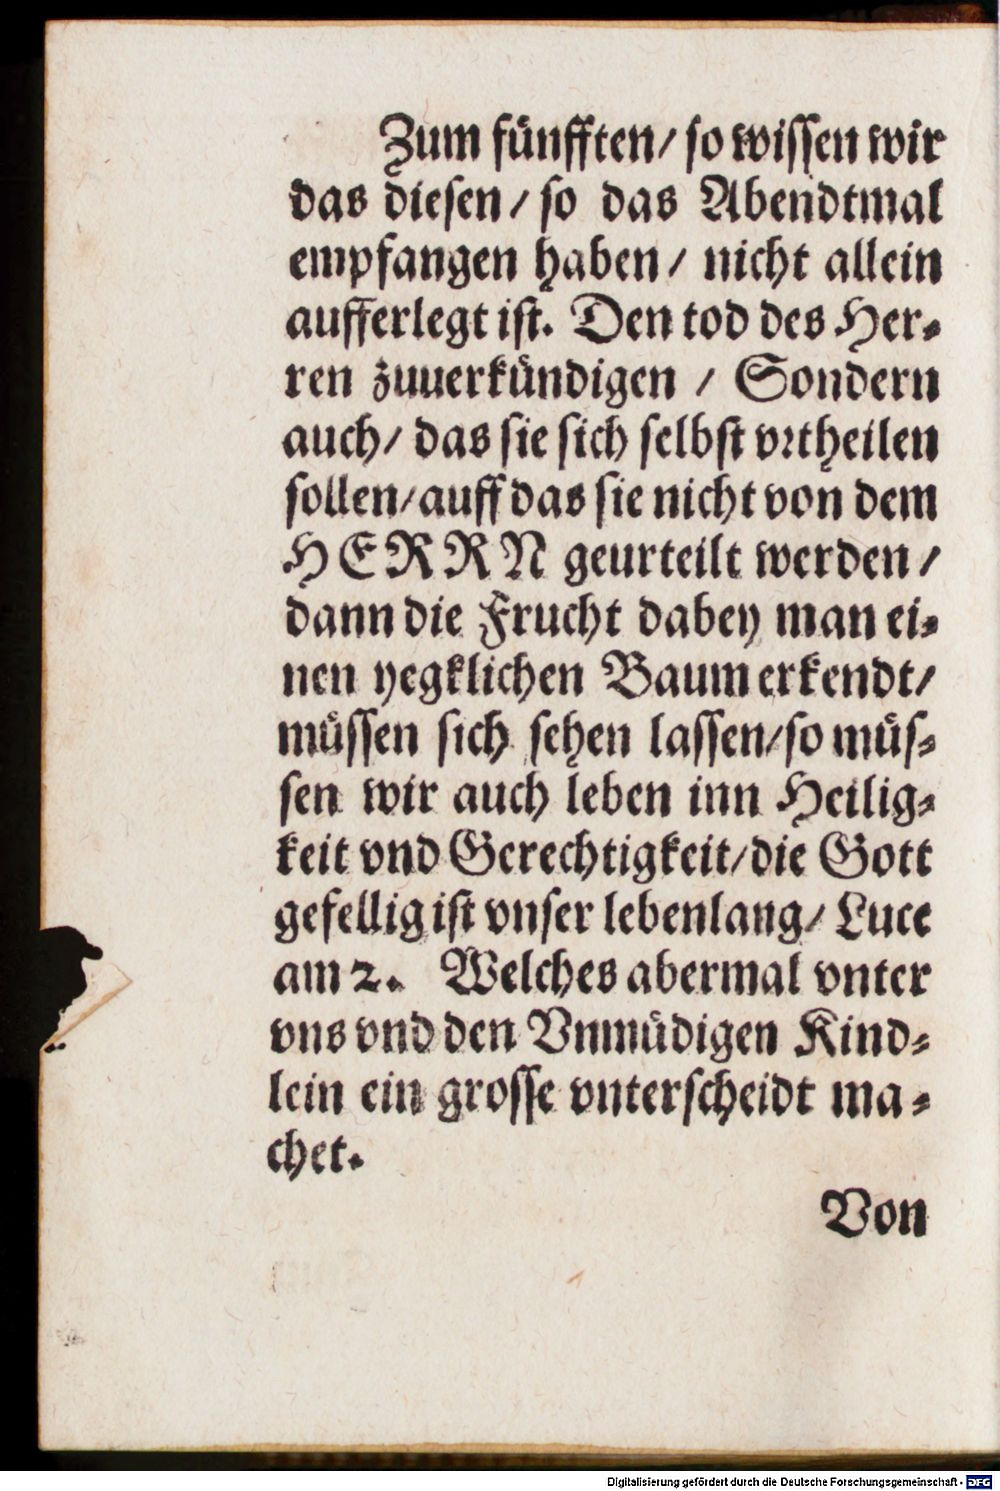 Zum fünfften/ so wissen wir
das diesen/ so das Abendtmal
empfangen haben/ nicht allein
aufferlegt ist. Den tod des Her⸗
ren zuuerkündigen / Sondern
auch/ das sie sich selbst vrtheilen
sollen/ auff das sie nicht von dem
HERRN geurteilt werden/
dann die Frucht dabey man ei⸗
nen yegklichen Baum erkendt/
müssen sich sehen lassen/ so müs⸗
sen wir auch leben inn Heilig⸗
keit vnd Gerechtigkeit/ die Gott
gefellig ist vnser lebenlang/ Luce
am 2. Welches abermal vnter
vns vnd den Vnmüdigen Kind⸗
lein ein grosse vnterscheidt ma⸗
chet.
Von
Digitalisierung gefördert durch die Deutsche Forschungsgemeinschaft - DFG